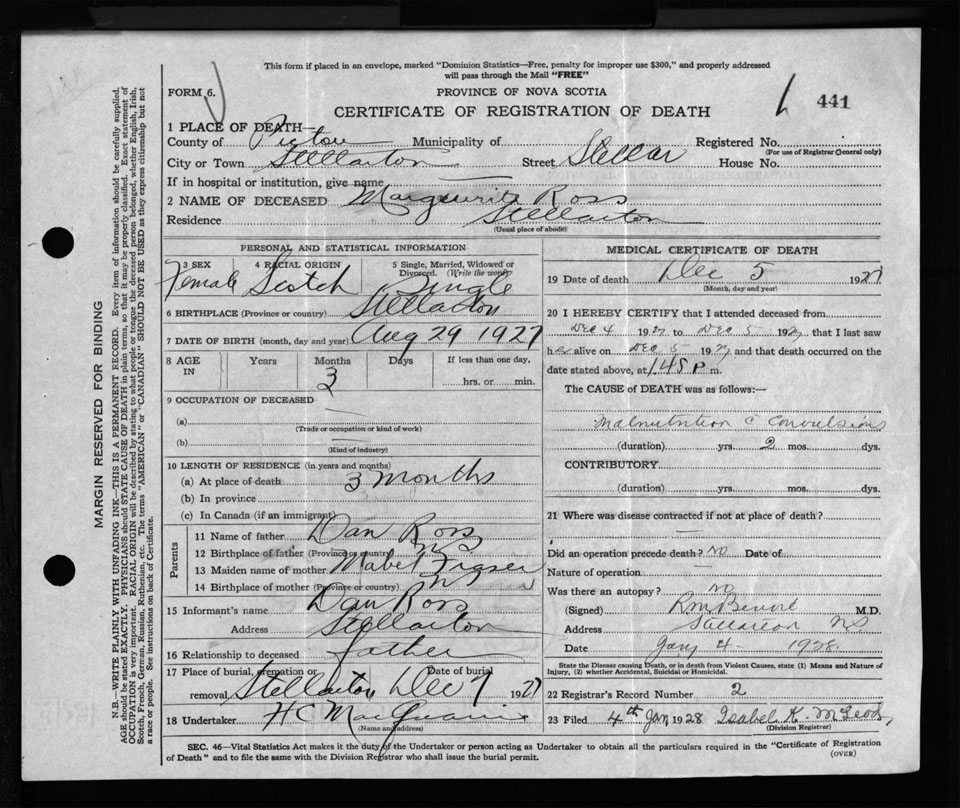 This form if placed in an envelope, marked "Dominion Statistics—Free, penalty for improper use $300," and properly addressed
will pass through the Mail "FREE"
FORM 6.
PROVINCE OF NOVA SCOTIA
CERTIFICATE OF REGISTRATION OF DEATH
441
1 PLACE OF DEATH—
County of Pictou Municipality of Registered No.
(For use of Registrar General only)
City or Town Stellarton Street Stellar House No.
If in hospital or institution, give name
2 NAME OF DECEASED Marguerite Ross
Residence Stellarton
(Usual place of abode)
PERSONAL AND STATISTICAL INFORMATION
3 SEX 4 RACIAL ORIGIN 5 Single, Married, Widowed or Divorced. (Write the word)
Female Scotch Single
6 BIRTHPLACE (Province or country) Stellarton
7 DATE OF BIRTH (month, day and year) Aug 29 1927
8 AGE IN Years Months Days If less than one day,
3 hrs. or min.
9 OCCUPATION OF DECEASED
(a)
(Trade or occupation or kind of work)
(b)
(Kind of industry)
10 LENGTH OF RESIDENCE (in years and months)
(a) At place of death 3 months
(b) In province
(c) In Canada (if an immigrant)
Parents
11 Name of father Dan Ross
12 Birthplace of father (Province or country) N S
13 Maiden name of mother Mabel Fraser
14 Birthplace of mother (Province or country) N S
15 Informant's name Dan Ross
Address Stellarton
16 Relationship to deceased father
17 Place of burial, cremation or removal Stellarton Date of burial Dec 7 1927
18 Undertaker H C MacQuarrie
(Name and address)
MEDICAL CERTIFICATE OF DEATH
19 Date of death Dec 5 1927
(Month, day and year)
20 I HEREBY CERTIFY that I attended deceased from
Dec 4 1927 to Dec 5 1927 that I last saw
her alive on Dec 5 1927 and that death occurred on the
date stated above, at 1.45 P m.
The CAUSE of DEATH was as follows:—
Malnutrition c Convulsions
(duration) yrs. 2 mos. dys.
CONTRIBUTORY
(duration) yrs. mos. dys.
21 Where was disease contracted if not at place of death?
Did an operation precede death? No Date of
Nature of operation
Was there an autopsy? No
(Signed) M.D.
Address Stellarton NS
Date Jany 4 1928
State the Disease causing Death, or in death from Violent Causes, state (1) Means and Nature of
Injury, (2) whether Accidental, Suicidal or Homicidal.
22 Registrar's Record Number 2
23 Filed 4th Jan 1928 Isabel K. McLeod,
(Division Registrar)
SEC. 46—Vital Statistics Act makes it the duty of the Undertaker or person acting as Undertaker to obtain all the particulars required in the "Certificate of Registration
of Death" and to file the same with the Division Registrar who shall issue the burial permit.
(OVER)
MARGIN RESERVED FOR BINDING
N.B.—WRITE PLAINLY WITH UNFADING INK—THIS IS A PERMANENT RECORD. Every item of information should be carefully supplied.
AGE should be stated EXACTLY. PHYSICIANS should STATE CAUSE OF DEATH in plain terms, so that it may be properly classified. Exact statement of
OCCUPATION is very important. RACIAL ORIGIN will be described by stating to what people or tongue the deceased person belonged, whether English, Irish,
Scotch, French, German, Russian, Ruthenian, etc. The terms "AMERICAN" or "CANADIAN" SHOULD NOT BE USED as they express citizenship but not
a race or people. See instructions on back of Certificate.